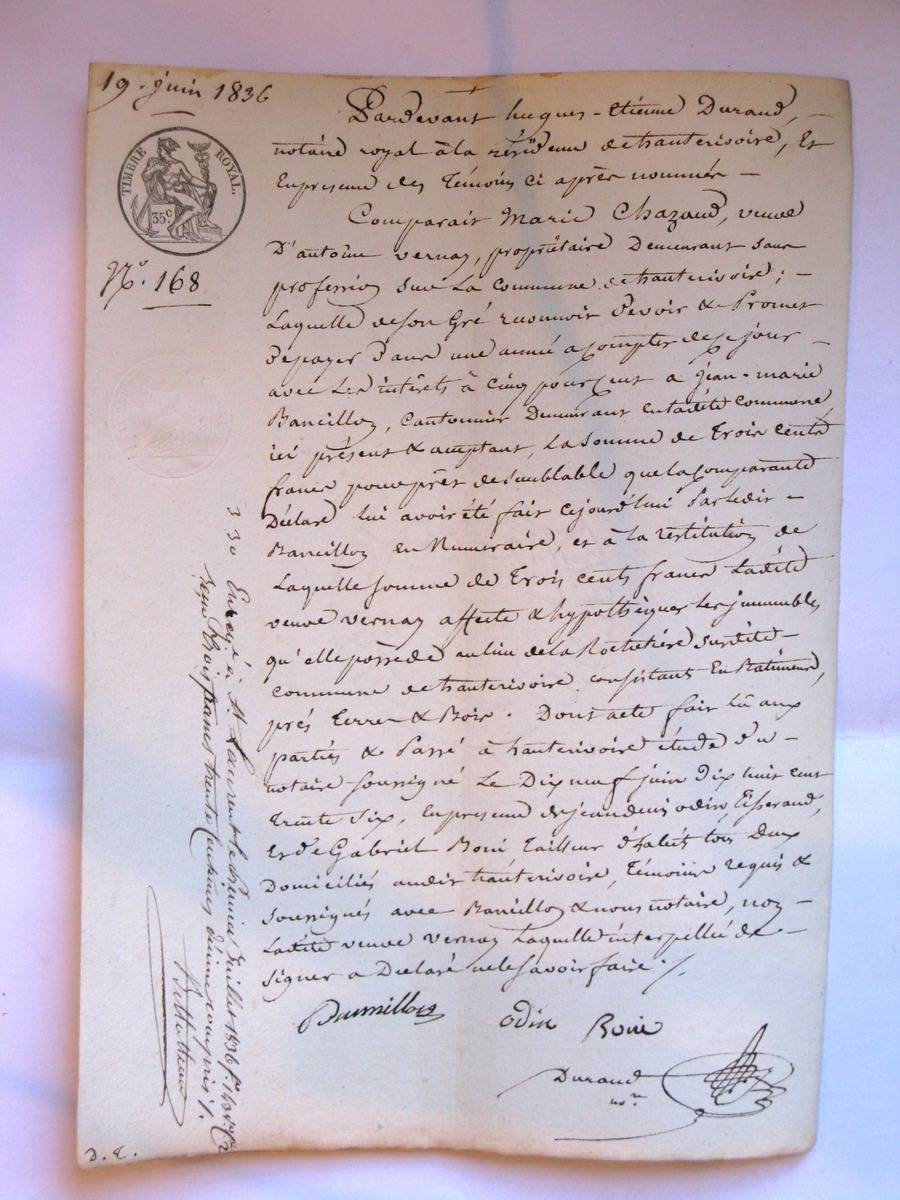 19. juin 1836
TIMBRE ROYAL.
35c.
N°. 168
Pardevant hugues-Etienne Durand,
notaire royal à la résidence de hauterivoire, Et
En presence des Témoins ci après nommés —
Comparait Marie Chazaud, veuve
D'antoine vernay, propriétaire Demeurant sans
profession sur La Commune de hauterivoire; —
Laquelle de son Gré reconnoit Devoir & Promet
De payer Dans une année a Compter de ce jour —
avec Les intérêts à Cinq pour Cent a Jean-marie
Bancillon, Cantonnier Demeurant en ladite Commune,
ici présent & acceptant, La Somme de Trois cents
francs pour prêt de semblable que la Comparante
Déclare lui avoir été fait cejourd'hui Par ledit —
Bancillon en Numeraire, et à la restitution de
Laquelle somme de Trois cents francs Ladite
veuve vernay affecte & hypothèque les immeubles
qu'elle possede au lieu de la Rochetière susdite —
Commune de hauterivoire, consistant En Batiments,
prés Terres & Bois. Dont acte fait lû aux
parties & Passé à hauterivoire étude du —
notaire soussigné Le Dix neuf juin dix huit cent
trente Six, En presence de jean denis odin, Tisserand,
Et de Gabriel Tailleur d'habits tous Deux
Domiciliés audit hauterivoire, Témoins requis &
soussignés avec Bancillon & nous notaire, non —
Ladite veuve vernay Laquelle interpellée de —
signer a Déclaré ne le savoir faire ./.
Bancillon
odin
Durand
nore
Enregé à St Laurent le premier Juillet 1836 fo
reçu trois francs trente Centimes décime compris ./.
3 30
D. E.